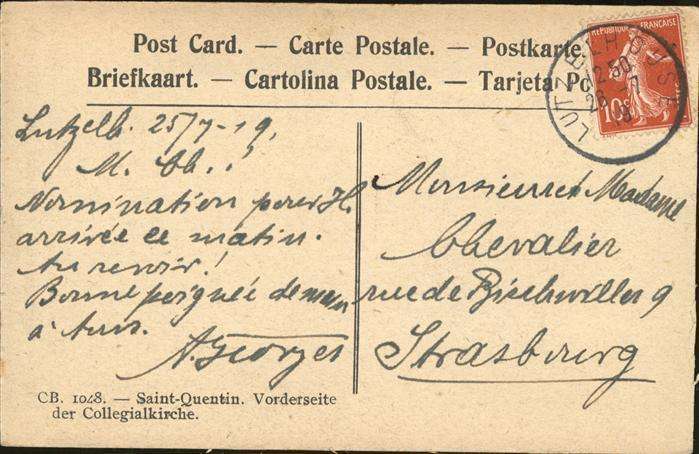 Post Card. — Carte Postale. — Postkarte.
Briefkaart. — Cartolina Postale. — Tarjeta Po
REPUBLIQUE FRANÇAISE
10c
LUTZELHOUSE
12.50
7
19
Lutzelh. 25/7-19.
M. Ch..!
Nomination pour H.
arrivée ce matin.
Au revoir!
Bonne poignée de main
à tous.
A. Georges
Monsieur et Madame
Chevalier
rue de Bischwiller 9
Strasbourg
CB. 1048. — Saint-Quentin. Vorderseite
der Collegialkirche.